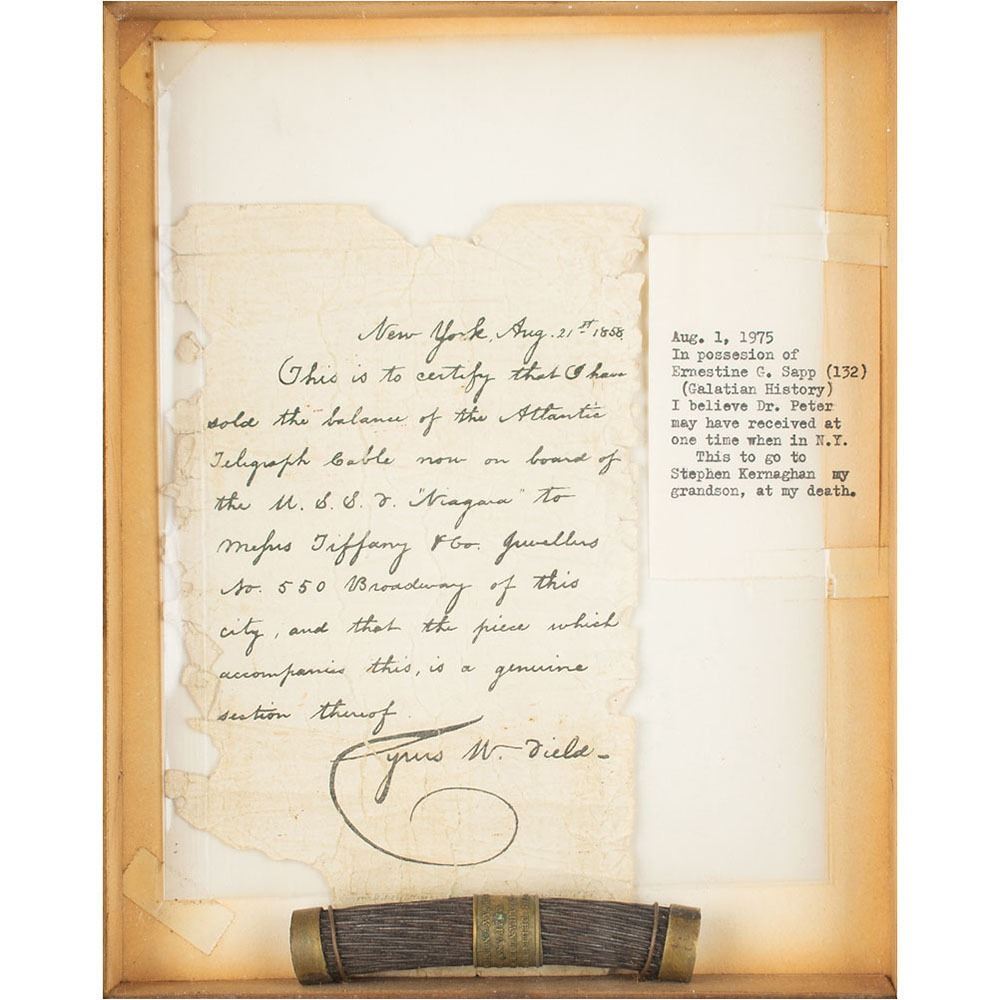 New York, Aug. 21st 1858.
This is to certify that I have
sold the balance of the Atlantic
Telegraph Cable now on board of
the U. S. S. F. "Niagara" to
Messrs Tiffany & Co. Jewellers
No. 550 Broadway of this
city, and that the piece which
accompanies this, is a genuine
section thereof.
Cyrus W. Field-
Aug. 1, 1975
In possesion of
Ernestine G. Sapp (132)
(Galatian History)
I believe Dr. Peter
may have received at
one time when in N.Y.
This to go to
Stephen Kernaghan my
grandson, at my death.